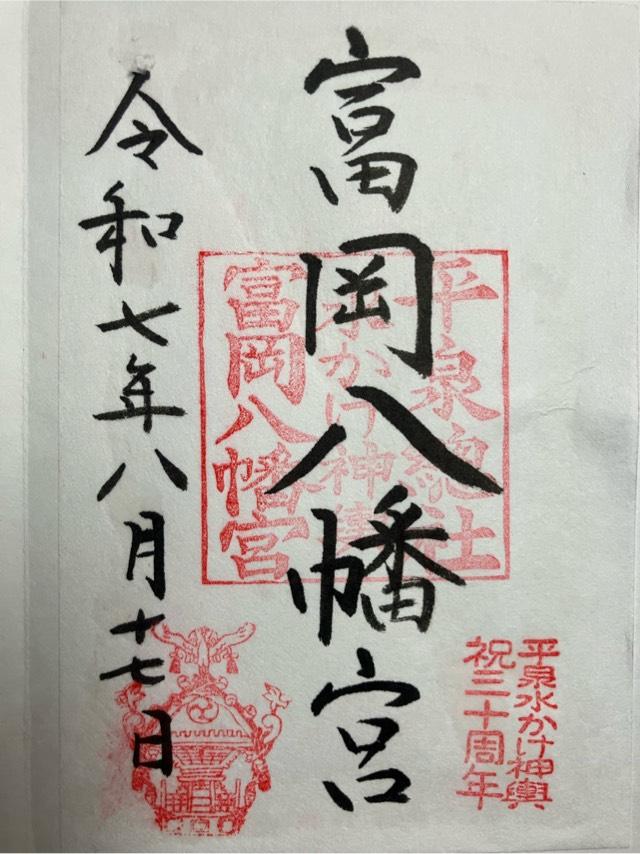 富岡八幡宮
平泉總社
水かけ神輿
富岡八幡宮
令和七年八月十七日
平泉水かけ神輿
祝三十周年